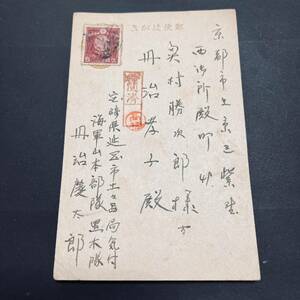 郵便はがき
京都市上京区紫竹
西御所殿町廿
奥村勝次郎様方
丹治孝子殿
宮崎県延岡市土々呂局気付
海軍山本部隊黒木隊
丹治慶太郎